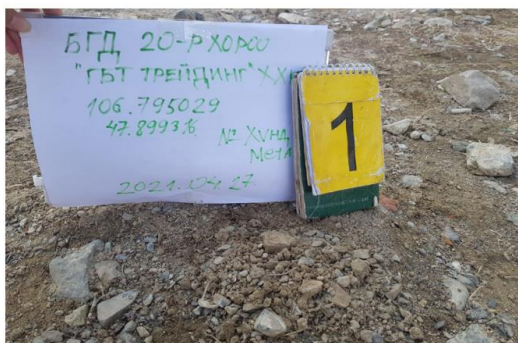 БГД 20-Р ХОРОО
"ГБТ ТРЕЙДИНГ" ХХ
106.795029
47.899316
№ ХУНД
МЕТА
2021.04.27
1